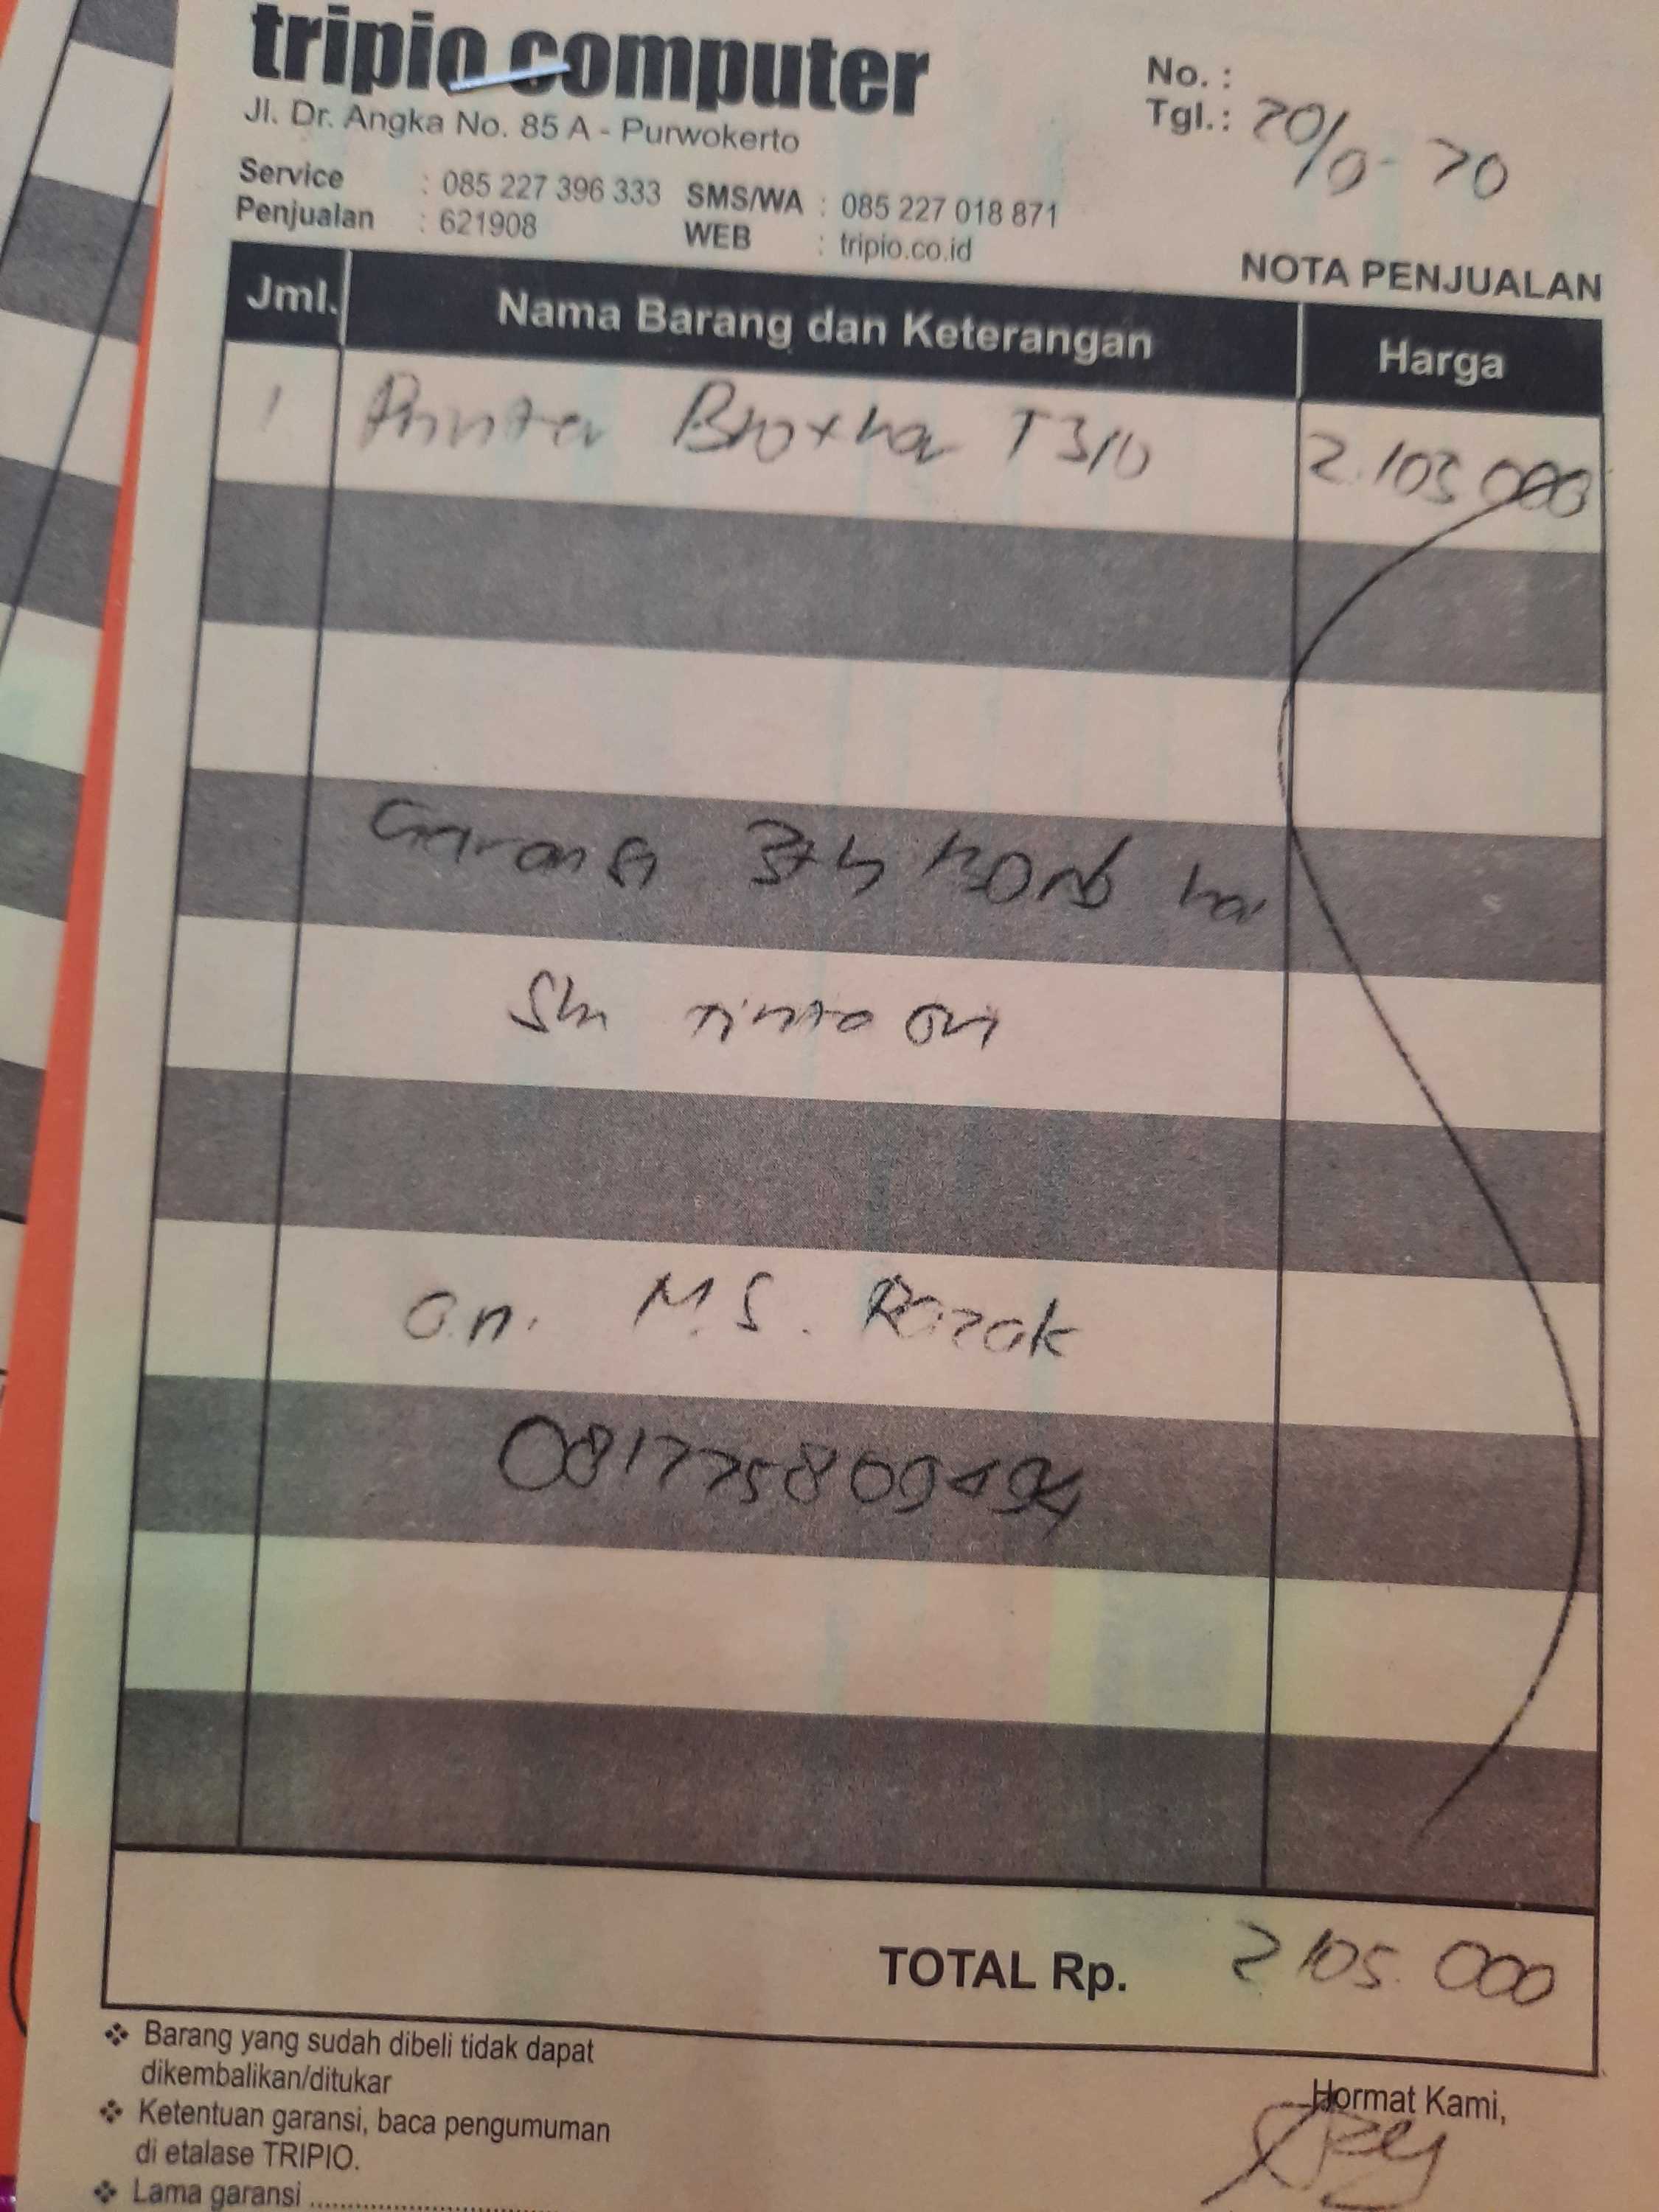 tripio computer
Jl. Dr. Angka No. 85 A - Purwokerto
No. :
Tgl.: 20/9-20
Service : 085 227 396 333 SMS/WA : 085 227 018 871
Penjualan : 621908 WEB : tripio.co.id
NOTA PENJUALAN
Jml. Nama Barang dan Keterangan Harga
1 Printer Brother T310 2.105.000
Garansi 3th
Sln tinta ori
a.n. M.S. Razak
TOTAL Rp. 2105.000
Barang yang sudah dibeli tidak dapat
dikembalikan/ditukar
Ketentuan garansi, baca pengumuman
di etalase TRIPIO.
Lama garansi
Hormat Kami,